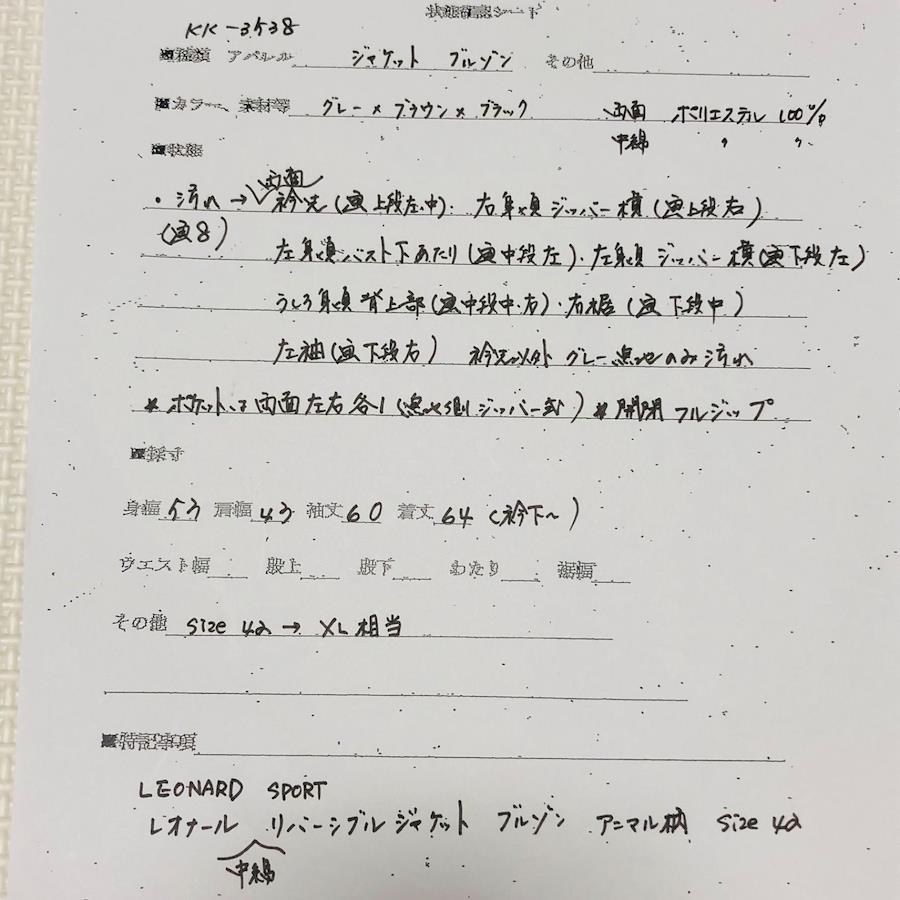 状態確認シート
KK-3538
■種類 アパレル ジャケット ブルゾン その他
■カラー、素材等 グレー×ブラウン×ブラック 両面 ポリエステル 100%
中綿 〃 〃
■状態
両面
・汚れ→衿先(画上段左・中)・右身頃ジッパー横(画上段右)
(画8) 左身頃バスト下あたり(画中段左)・左身頃ジッパー横(画下段左)
うしろ身頃背上部(画中段中・右)・右裾(画下段中)
左袖(画下段右) 衿先以外グレー無地のみ汚れ
*ポケットは両面左右各1(無地側ジッパー式) *開閉フルジップ
■採寸
身幅53 肩幅43 袖丈60 着丈64(衿下〜)
ウエスト幅 股上 股下 わたり 裾幅
その他 size 42→XL相当
■特記事項
LEONARD SPORT
レオナール リバーシブルジャケット ブルゾン アニマル柄 size 42
中綿